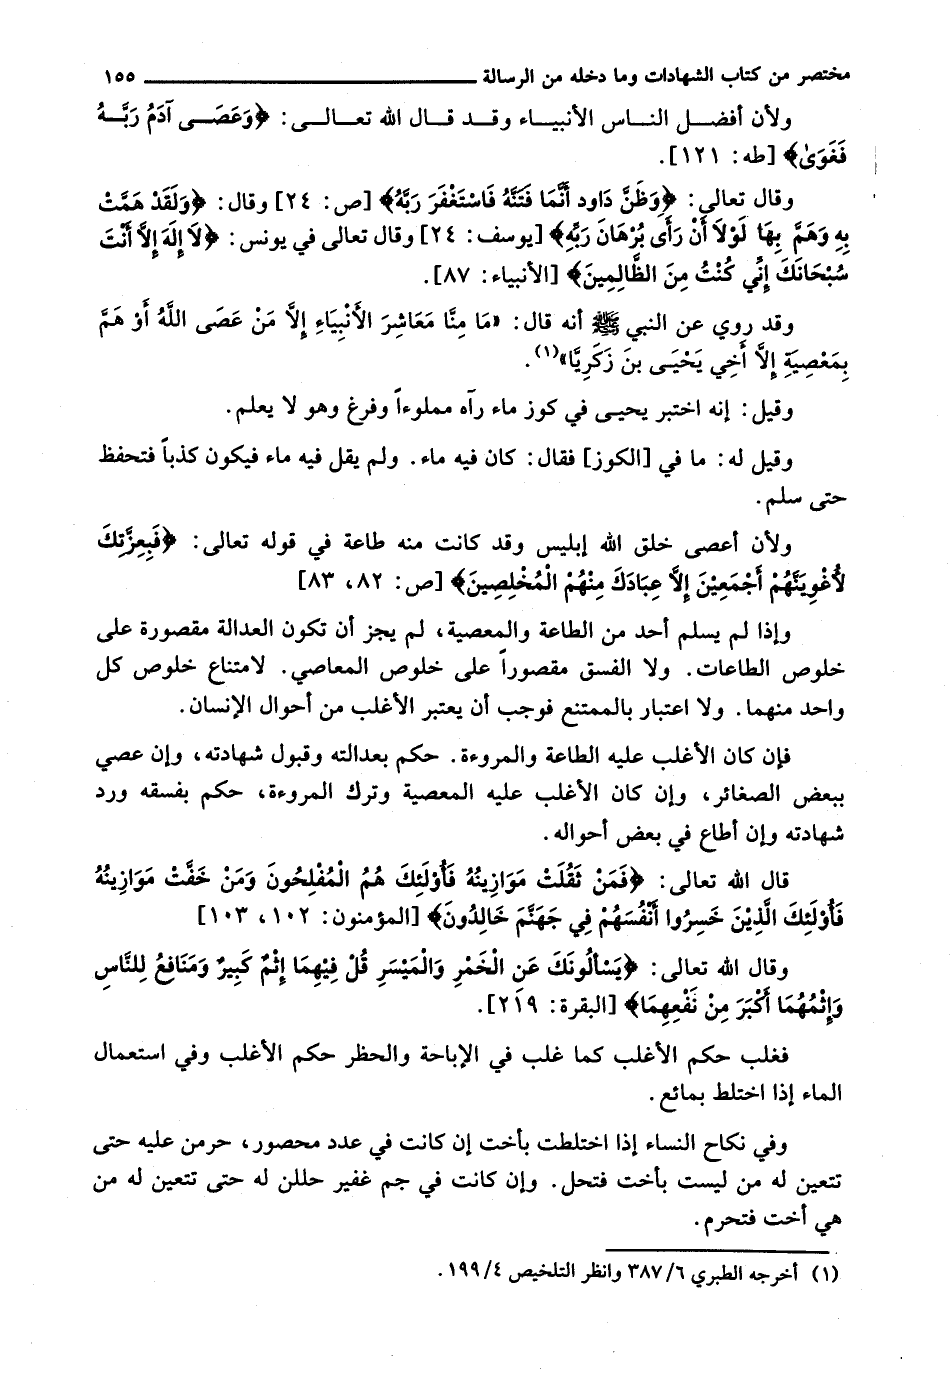 مختصر من كتاب الشهادات وما دخله من الرسالة ١٥٥
ولأن أفضل الناس الأنبياء وقد قال الله تعالى: ﴿وَعَصَى آدَمُ رَبَّهُ
فَغَوَىٰ﴾ [طه: ١٢١].
وقال تعالى: ﴿وَظَنَّ دَاود أَنَّمَا فَتَنَّهُ فَاسْتَغْفَرَ رَبَّهُ﴾ [ص: ٢٤] وقال: ﴿وَلَقَدْ هَمَّتْ
بِهِ وَهَمَّ بِهَا لَوْلاَ أَنْ رَأَى بُرْهَانَ رَبِّهِ﴾ [يوسف: ٢٤] وقال تعالى في يونس: ﴿لاَ إِلَهَ إِلاَّ أَنْتَ
سُبْحَانَكَ إِنِّي كُنْتُ مِنَ الظَّالِمِينَ﴾ [الأنبياء: ٨٧].
وقد روي عن النبي ﷺ أنه قال: «مَا مِنَّا مَعَاشِرَ الأَنْبِيَاءِ إِلاَّ مَنْ عَصَى اللَّهُ أَوْ هَمَّ
بِمَعْصِيَةٍ إِلاَّ أَخِي يَحْيَى بنَ زَكَرِيَّا»(١).
وقيل: إنه اختبر يحيى في كوز ماء رآه مملوءاً وفرغ وهو لا يعلم.
وقيل له: ما في [الكوز] فقال: كان فيه ماء. ولم يقل فيه ماء فيكون كذباً فتحفظ
حتى سلم.
ولأن أعصى خلق الله إبليس وقد كانت منه طاعة في قوله تعالى: ﴿فَبِعِزَّتِكَ
لأُغْوِيَنَّهُمْ أَجْمَعِيْنَ إِلاَّ عِبَادَكَ مِنْهُمْ الْمُخْلِصِينَ﴾ [ص: ٨٢، ٨٣]
وإذا لم يسلم أحد من الطاعة والمعصية، لم يجز أن تكون العدالة مقصورة على
خلوص الطاعات. ولا الفسق مقصوراً على خلوص المعاصي. لامتناع خلوص كل
واحد منهما. ولا اعتبار بالممتنع فوجب أن يعتبر الأغلب من أحوال الإنسان.
فإن كان الأغلب عليه الطاعة والمروءة. حكم بعدالته وقبول شهادته، وإن عصي
ببعض الصغائر، وإن كان الأغلب عليه المعصية وترك المروءة، حكم بفسقه ورد
شهادته وإن أطاع في بعض أحواله.
قال الله تعالى: ﴿فَمَنْ ثَقُلَتْ مَوَازِينُهُ فَأُوْلَئِكَ هُمُ الْمُفْلِحُونَ وَمَنْ خَفَّتْ مَوَازِينُهُ
فَأُوْلَئِكَ الَّذِيْنَ خَسِرُوا أَنْفُسَهُمْ فِي جَهَنَّمَ خَالِدُونَ﴾ [المؤمنون: ١٠٢، ١٠٣]
وقال الله تعالى: ﴿يَسْأَلُونَكَ عَنِ الْخَمْرِ وَالْمَيْسَرِ قُلْ فِيْهِمَا إِثْمٌ كَبِيرٌ وَمَنَافِعُ لِلنَّاسِ
وَإِثْمُهُمَا أَكْبَرَ مِنْ نَفْعِهِمَا﴾ [البقرة: ٢١٩].
فغلب حكم الأغلب كما غلب في الإباحة والحظر حكم الأغلب وفي استعمال
الماء إذا اختلط بمائع.
وفي نكاح النساء إذا اختلطت بأخت إن كانت في عدد محصور، حرمن عليه حتى
تتعين له من ليست بأخت فتحل. وإن كانت في جم غفير حللن له حتى تتعين له من
هي أخت فتحرم.
(١) أخرجه الطبري ٣٨٧/٦ وانظر التلخيص ١٩٩/٤.